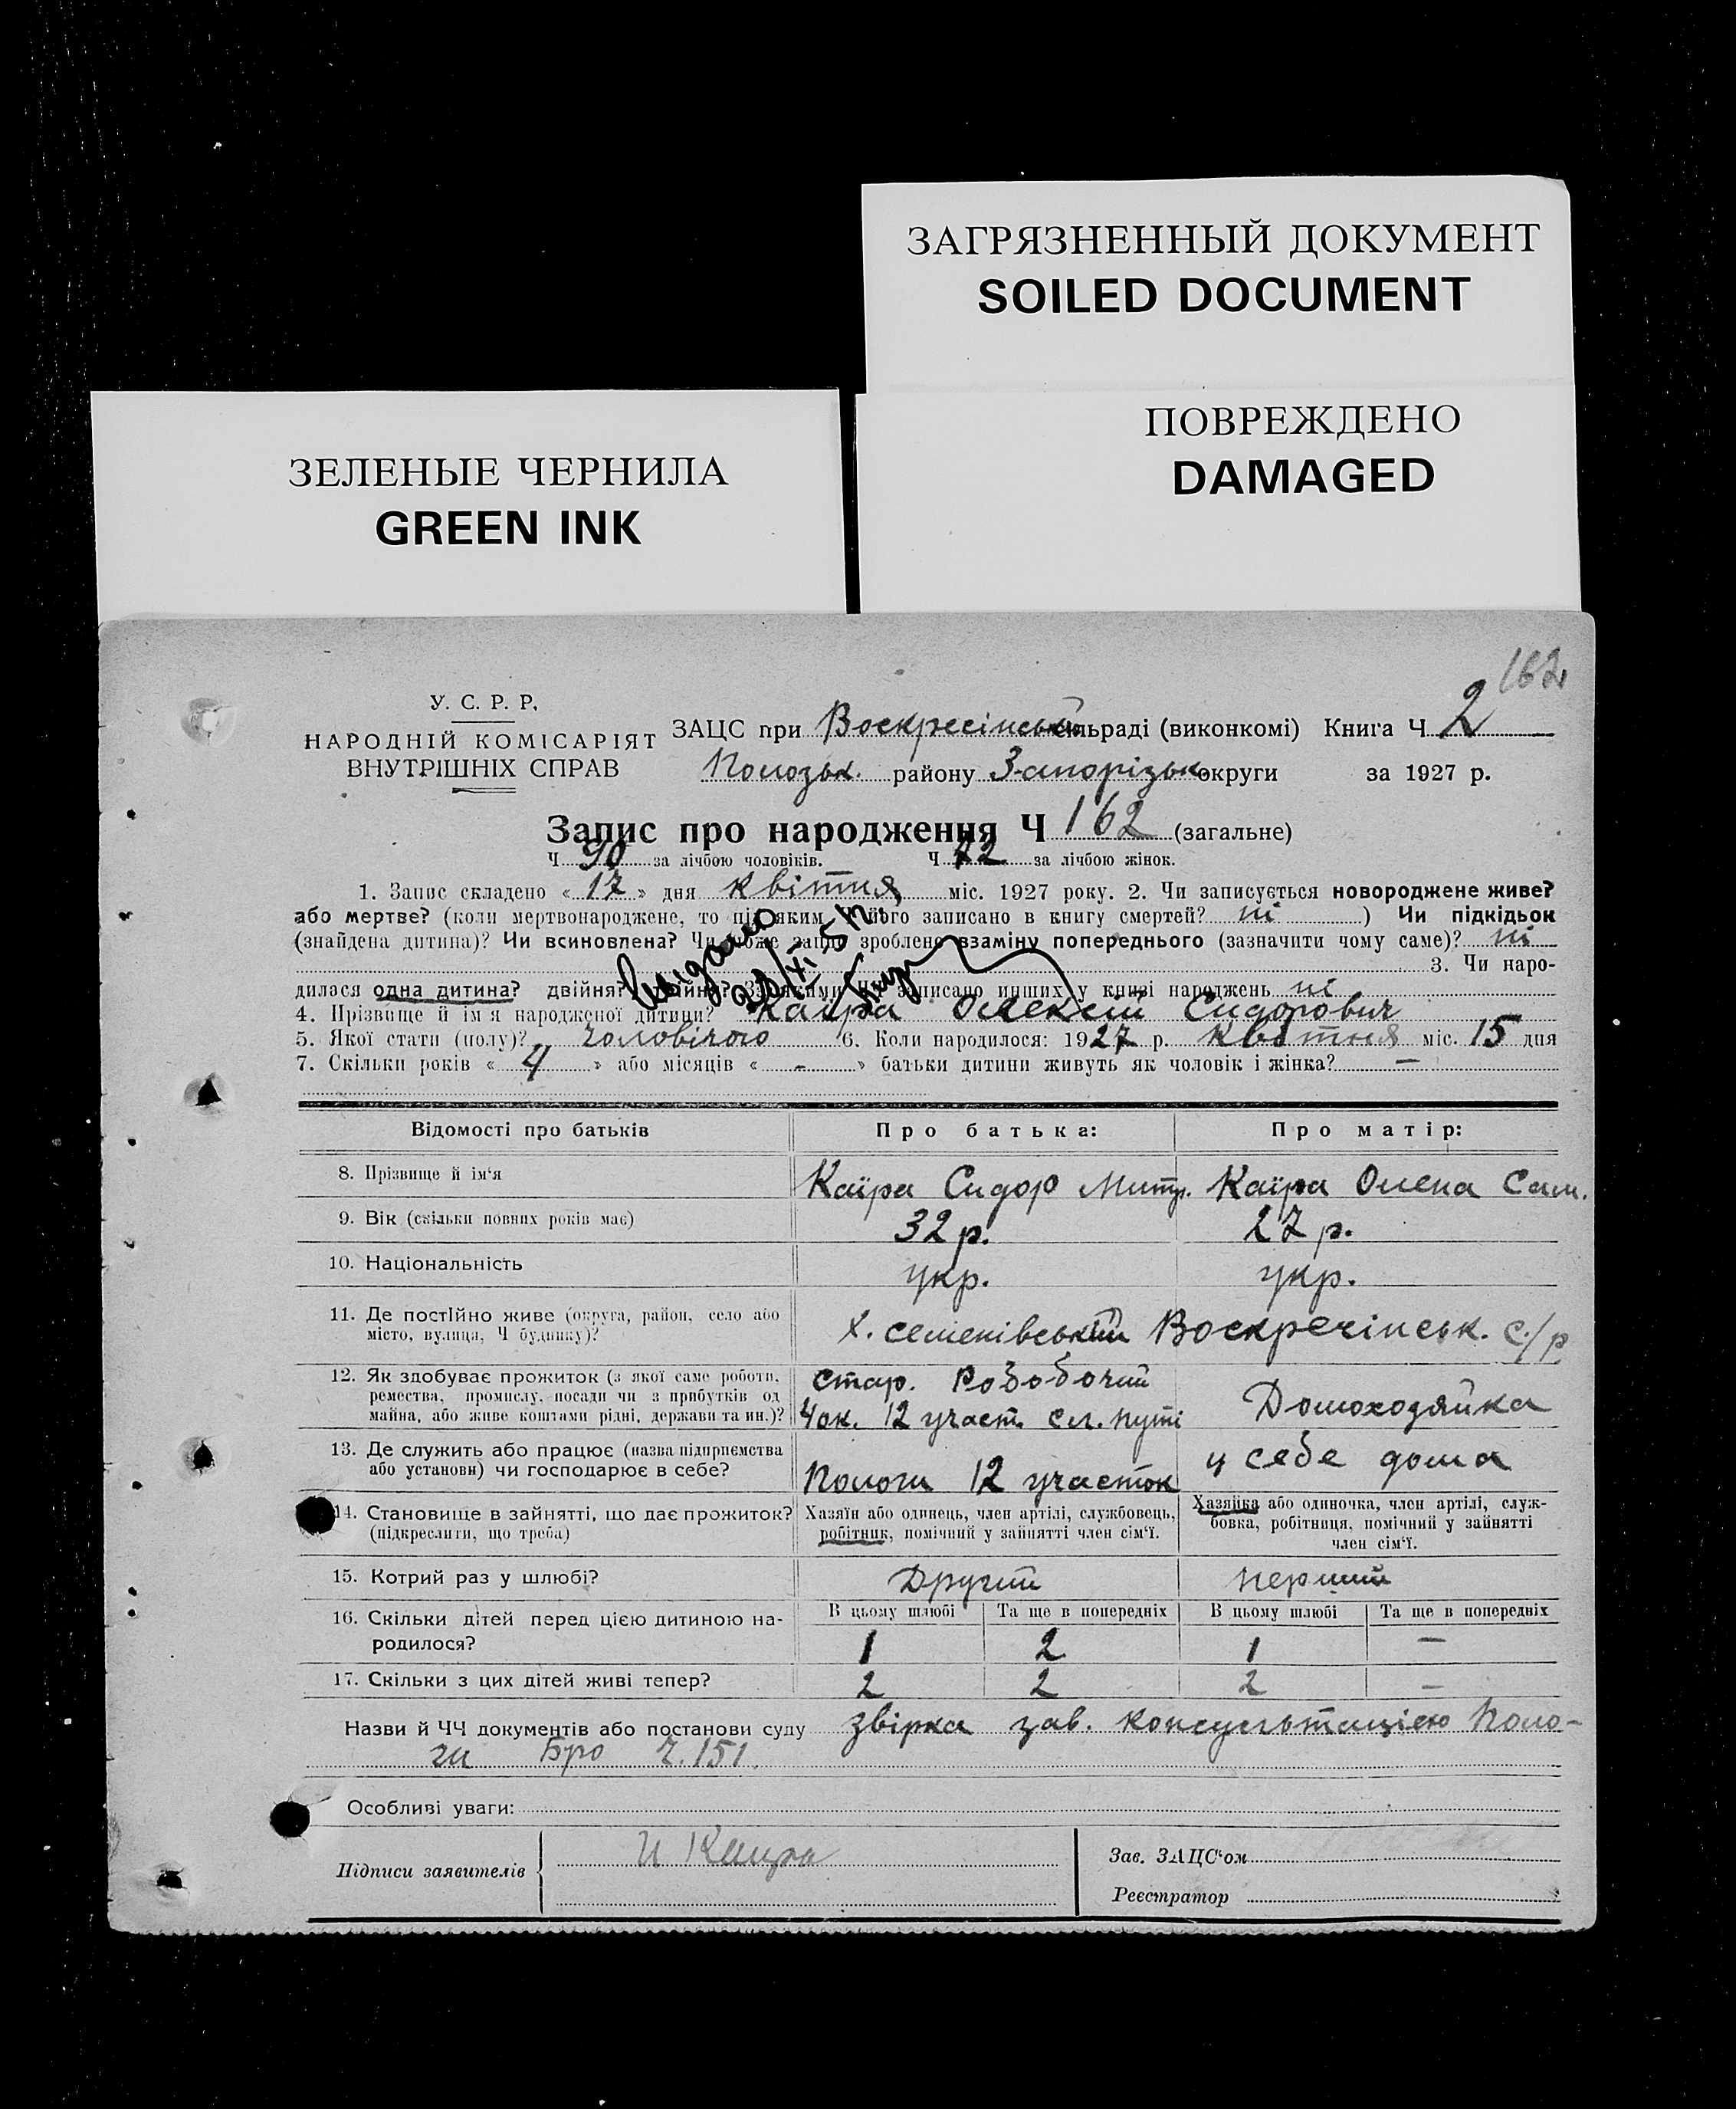 ЗАГРЯЗНЕННЫЙ ДОКУМЕНТ
SOILED DOCUMENT
ПОВРЕЖДЕНО
DAMAGED
ЗЕЛЕНЫЕ ЧЕРНИЛА
GREEN INK
162
У. С. Р. Р.
НАРОДНІЙ КОМІСАРІЯТ
ВНУТРІШНІХ СПРАВ
ЗАЦС при Воскресінській сільраді (виконкомі) Книга Ч 2
Полозьк. району Запорізьк округи за 1927 р.
Запис про народження Ч 162 (загальне)
Ч 90 за лічбою чоловіків. Ч 72 за лічбою жінок.
1. Запис складено « 17 » дня квітня міс. 1927 року. 2. Чи записується новороджене живе?
або мертве? (коли мертвонароджене, то під яким Ч його записано в книгу смертей? ні ) Чи підкідьок
(знайдена дитина)? Чи всиновлена? Чи може запис зроблено взаміну попереднього (зазначити чому саме)? ні
3. Чи наро-
дилася одна дитина? двійня? трійня? З якими ЧЧ записано инших у книзі народжень ні
4. Прізвище й ім'я народженої дитини? Каїра Олексій Сидорович
5. Якої стати (полу)? чоловічого 6. Коли народилося: 1927 р. квітня міс. 15 дня
7. Скільки років « 4 » або місяців « - » батьки дитини живуть як чоловік і жінка? —
Відомості про батьків Про батька: Про матір:
8. Прізвище й ім'я Каїра Сидор Митр. Каїра Олена Сам.
9. Вік (скільки повних років має) 32 р. 27 р.
10. Національність укр. укр.
11. Де постійно живе (округа, район, село або
місто, вулиця, Ч будинку)? х. семенівський Воскресінськ. с/р
12. Як здобуває прожиток (з якої саме роботи,
ремества, промислу, посади чи з прибутків од
майна, або живе коштами рідні, держави та ин.)? стар. Робочий
12 участ. сл. путі Домоходяйка
13. Де служить або працює (назва підприємства
або установи) чи господарює в себе? Пологи 12 участок у себе дома
14. Становище в зайнятті, що дає прожиток?
(підкреслити, що треба)
Хазяїн або одинець, член артілі, службовець,
робітник, помічний у зайнятті член сім'ї.
Хазяйка або одиночка, член артілі, служ-
бовка, робітниця, помічний у зайнятті
член сім'ї.
15. Котрий раз у шлюбі? Другий перший
16. Скільки дітей перед цією дитиною на-
родилося?
В цьому шлюбі Та ще в попередніх В цьому шлюбі Та ще в попередніх
1 2 1 —
17. Скільки з цих дітей живі тепер? 2 2 2 —
Назви й ЧЧ документів або постанови суду звірка зав. консультацією Поло-
ги Бро ч. 151.
Особливі уваги:
Підписи заявителів
Зав. ЗАЦС'ом
Реєстратор